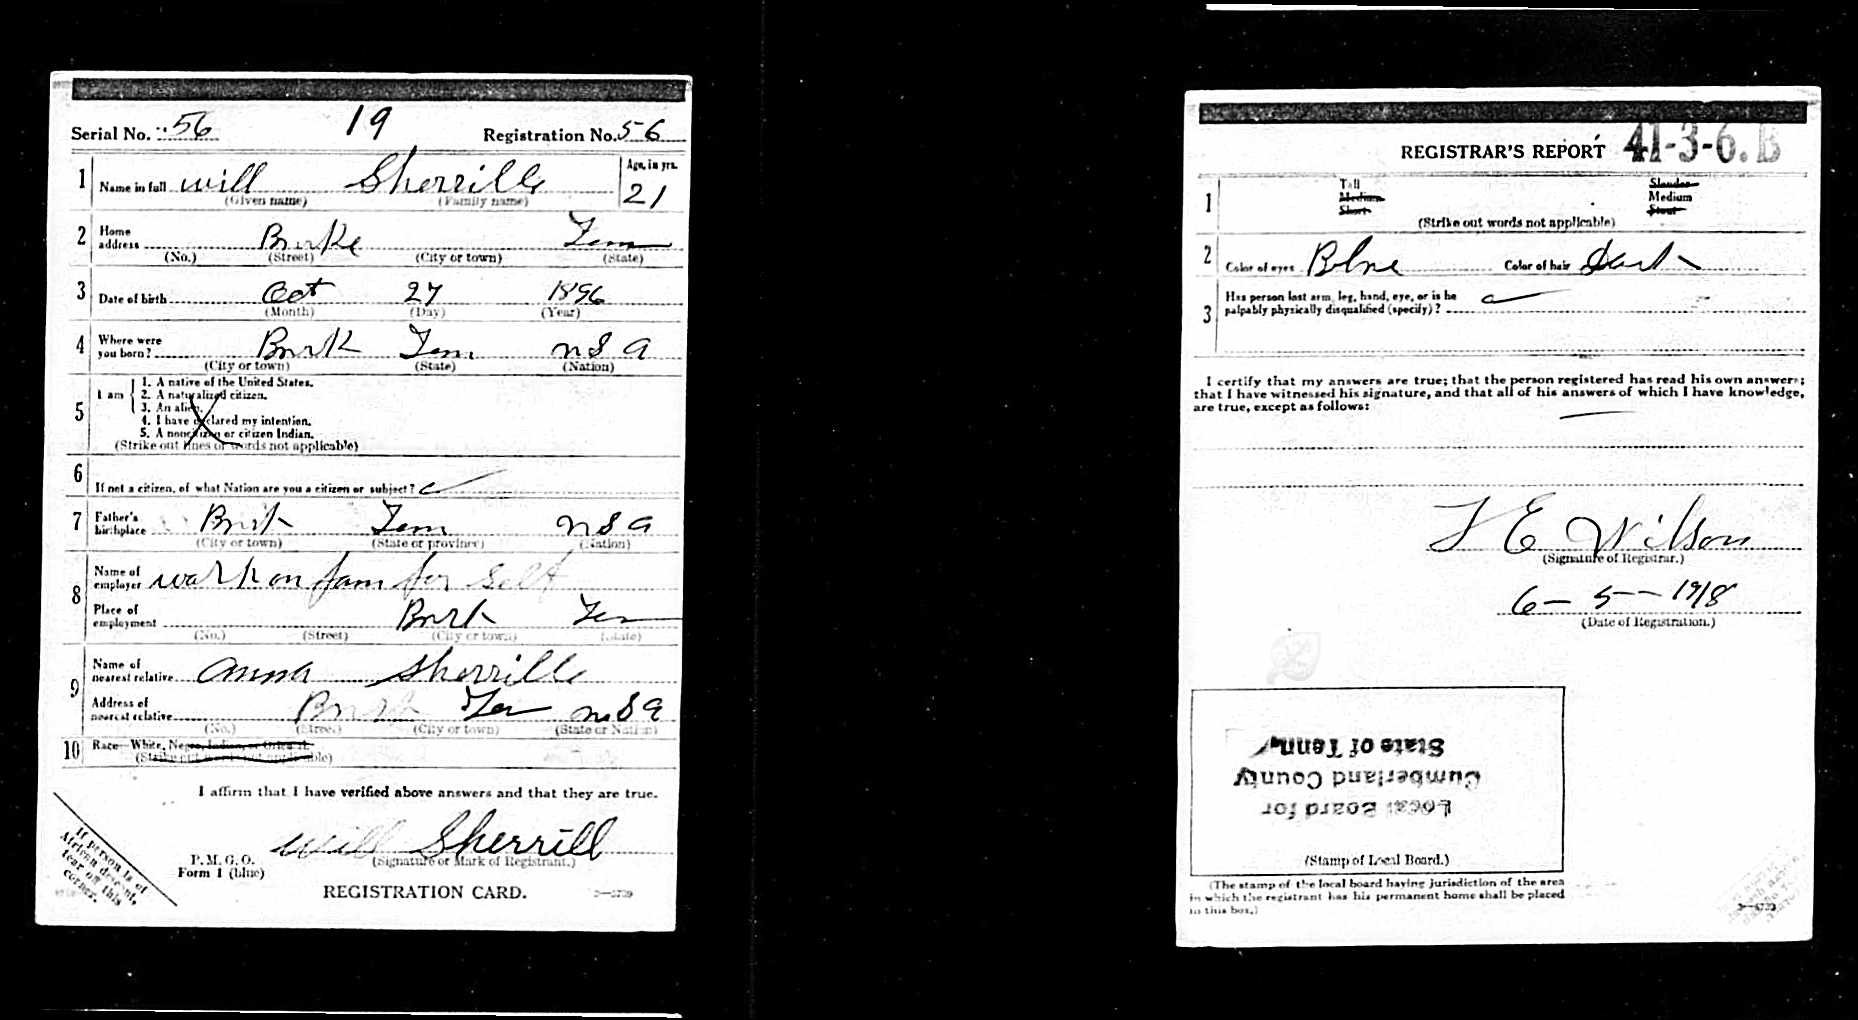 Serial No. 56 19 Registration No. 56
1 Name in full will Sherrille Age, in yrs.
(Given name) (Family name) 21
2 Home address Burke Tenn
(No.) (Street) (City or town) (State)
3 Date of birth Oct 27 1896
(Month) (Day) (Year)
4 Where were you born? Burk Tenn U S A
(City or town) (State) (Nation)
5 I am
1. A native of the United States.
2. A naturalized citizen.
3. An alien.
4. I have declared my intention.
5. A noncitizen or citizen Indian.
(Strike out lines or words not applicable)
6 If not a citizen, of what Nation are you a citizen or subject?
7 Father's birthplace Burk Tenn U S A
(City or town) (State or province) (Nation)
8 Name of employer work on farm for Self
Place of employment Burk Ten
(No.) (Street) (City or town) (State)
9 Name of nearest relative anna Sherrille
Address of nearest relative Burk Ten U S A
(No.) (Street) (City or town) (State or Nation)
10 Race—White, Negro, Indian, or Oriental.
(Strike out words not applicable)
I affirm that I have verified above answers and that they are true.
will Sherrill
P. M. G. O. (Signature or Mark of Registrant.)
Form 1 (blue)
REGISTRATION CARD. 3—4739
If person is of
African descent,
tear off this
corner.
REGISTRAR'S REPORT 41-3-6. B
1 Tall Slender
Medium Medium
Short Stout
(Strike out words not applicable)
2 Color of eyes Blue Color of hair Dark
3 Has person lost arm, leg, hand, eye, or is he
palpably physically disqualified (specify)?
I certify that my answers are true; that the person registered has read his own answers;
that I have witnessed his signature, and that all of his answers of which I have knowledge,
are true, except as follows:
E Wilson
(Signature of Registrar.)
6 - 5 - 1918
(Date of Registration.)
Local Board for
Cumberland County
State of Tenn.
(Stamp of Local Board.)
(The stamp of the local board having jurisdiction of the area
in which the registrant has his permanent home shall be placed
in this box.)
3—4739